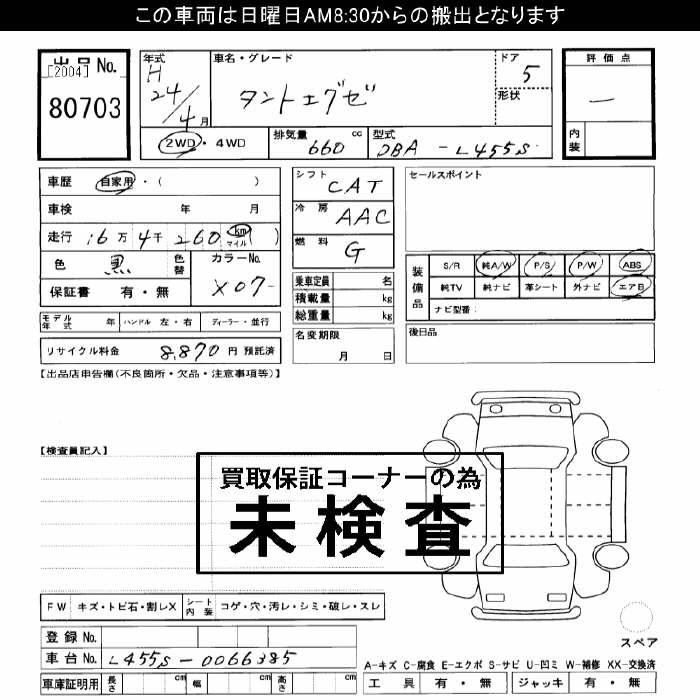 この車両は日曜日AM8:30からの搬出となります
出品No. [2004] 80703
年式 H 24/4月
車名・グレード タントエグゼ
ドア 5
形状
評価点 —
内装
2WD・4WD
排気量 660 cc
型式 DBA-L455S
車歴 自家用・( )
車検 年 月
走行 16万4千260 km マイル ( )
色 黒 色替
カラーNo. X07-
保証書 有・無
シフト CAT
冷房 AAC
燃料 G
乗車定員 名
積載量 kg
総重量 kg
セールスポイント
装備品 S/R 純A/W P/S P/W ABS
純TV 純ナビ 革シート 外ナビ エアB
ナビ型番:
モデル年式 年 ハンドル 左・右 ディーラー・並行
名変期限 月 日
後日品
リサイクル料金 8,870 円 預託済
【出品店申告欄(不良箇所・欠品・注意事項等)】
【検査員記入】
買取保証コーナーの為
未検査
FW キズ・トビ石・割レX シート内装 コゲ・穴・汚レ・シミ・破レ・スレ
登録No.
車台No. L455S-0066385
スペア
A-キズ C-腐食 E-エクボ S-サビ U-凹ミ W-補修 XX-交換済
車庫証明用 長さ cm 幅 cm 高さ cm
工具 有・無 ジャッキ 有・無